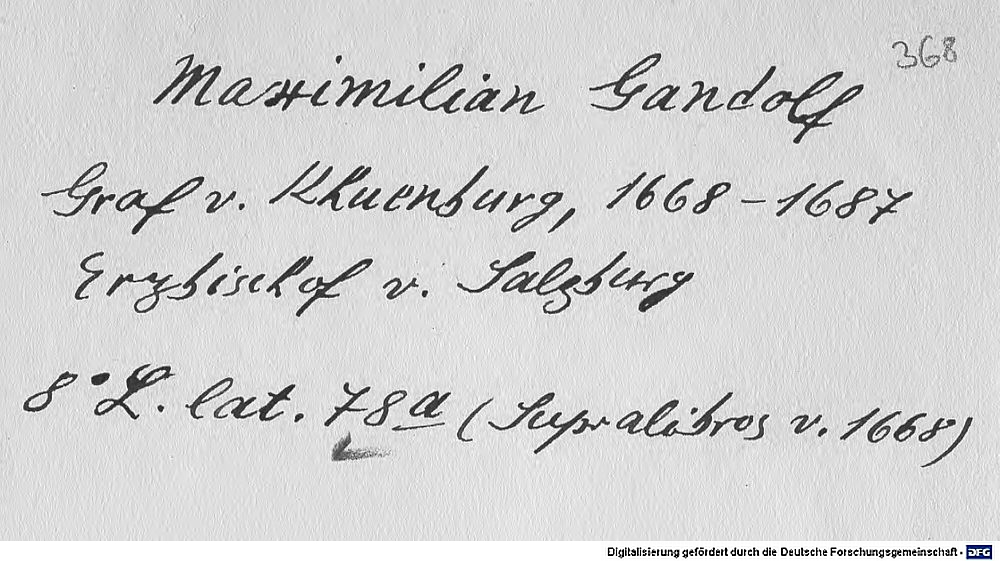 368
Maximilian Gandolf
Graf v. Khuenburg, 1668-1687
Erzbischof v. Salzburg
8° L. lat. 78a (Supralibros v. 1668)
Digitalisierung gefördert durch die Deutsche Forschungsgemeinschaft - DFG